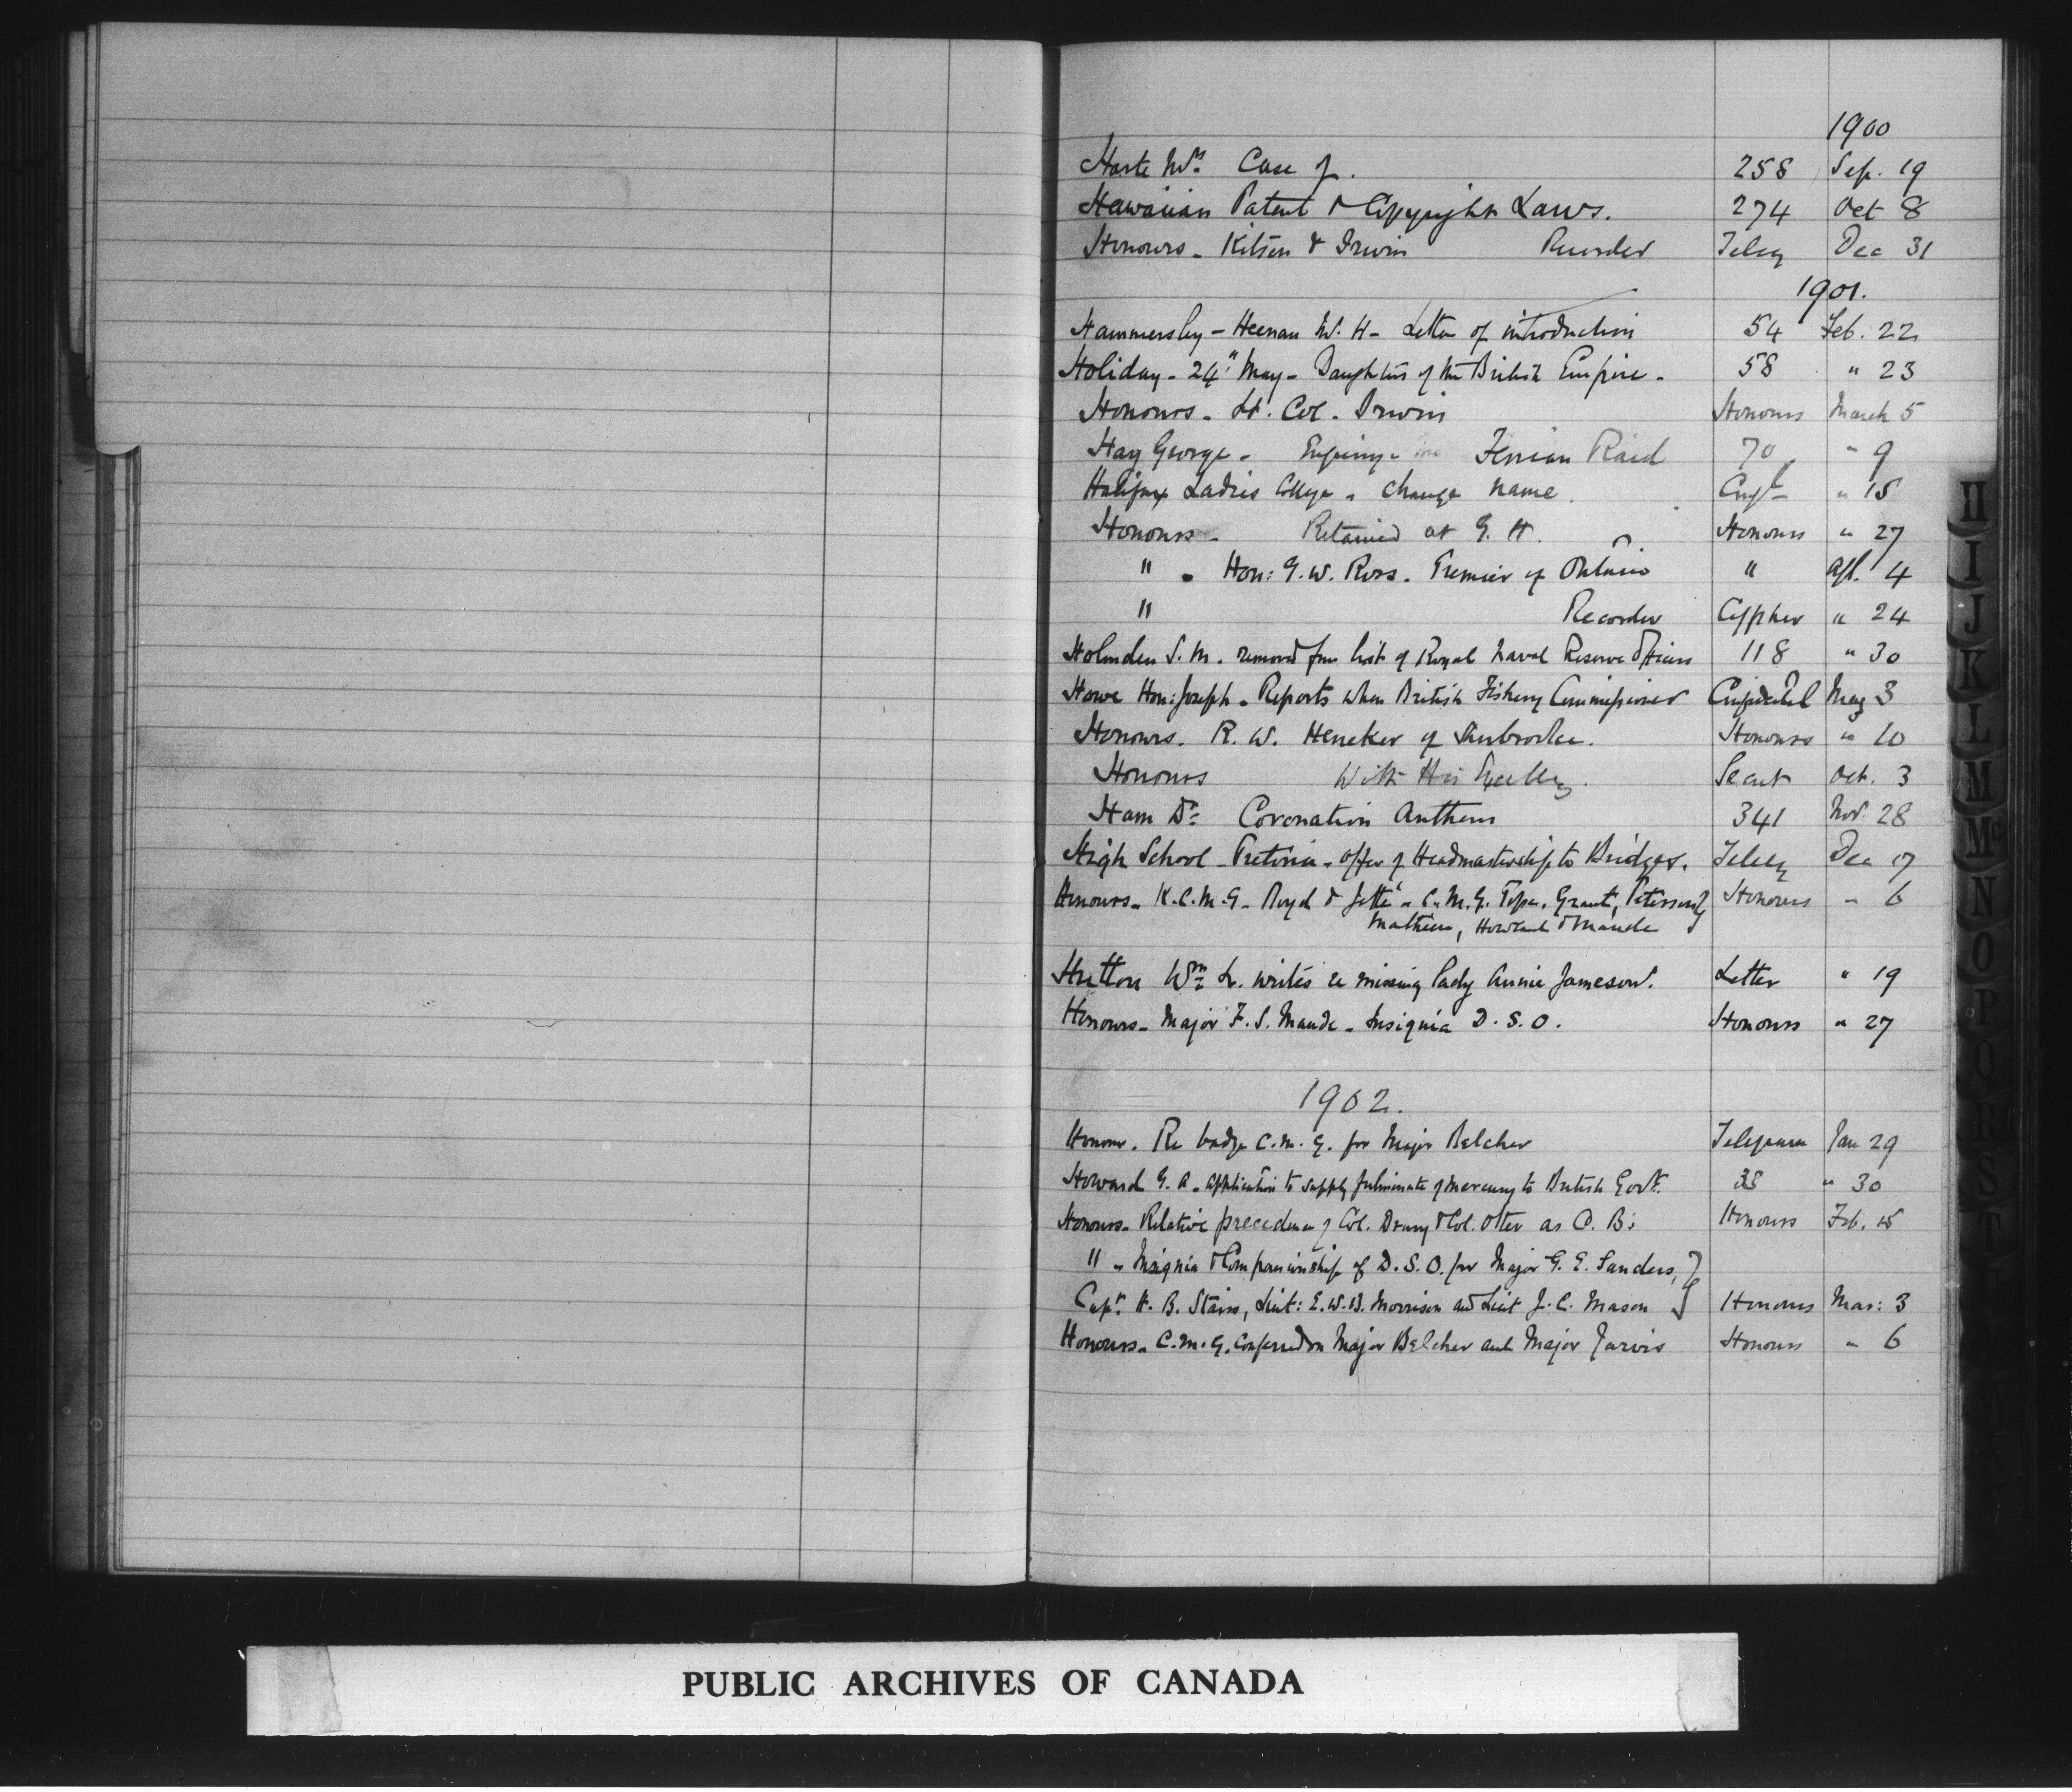 1900
Harte Mrs Case of. 258 Sep. 19
Hawaiian Patent & Copyright Laws. 274 Oct 8
Honours - Kitson & Irwin Recorder Teleg Dec 31
1901.
Hammersley - Heenan W. H - Letter of introduction 54 Feb. 22
Holiday - 24" May - Daughters of the British Empire - 58 " 23
Honours - Lt. Col. Irwin Honours March 5
Hay George - Enquiry Fenian Raid 70 " 9
Halifax Ladies College - change name. " 15
Honours - Retained at G. H. Honours " 27
" - Hon: G. W. Ross - Premier of Ontario " Apl. 4
" Recorder Cypher " 24
Holmden S. M. removed from list of Royal Naval Reserve Officers 118 " 30
Howe Hon: Joseph - Reports when British Fishery Commissioner Confidential May 3
Honours. R. W. Heneker of Sherbrooke. Honours " 10
Honours With His Excellcy. Secret Oct. 3
Ham Dr Coronation Anthem 341 Nov 28
High School - Pretoria - offer of Headmastership to Bridges. Teleg Dec 17
Honours - K.C.M.G - Boyd & Jetté - C.M.G. Pope, Grant, Peterson } Honours " 6
Mathieu, Howland & Maude
Hutton Wm L. writes re missing lady Annie Jameson. Letter " 19
Honours - Major F. S. Maude - Insignia D. S. O. Honours " 27
1902.
Honour. Re badge C.M.G. for Major Belcher Telegram Jan 29
Howard G. A. application to supply fulminate of mercury to British Govt. 38 " 30
Honours - Relative precedence of Col. Drury & Col. Otter as C. B: Honours Feb. 15
" - Insignia & Companionship of D. S. O. for Major G. E. Sanders, }
Capt. H. B. Stairs, Lieut: E. W. B. Morrison and Lieut J. C. Mason } Honours Mar: 3
Honours - C.M.G. conferred on Major Belcher and Major Jarvis Honours " 6
H
I
J
K
L
M
Mc
N
O
P
Q
R
S
T
PUBLIC ARCHIVES OF CANADA